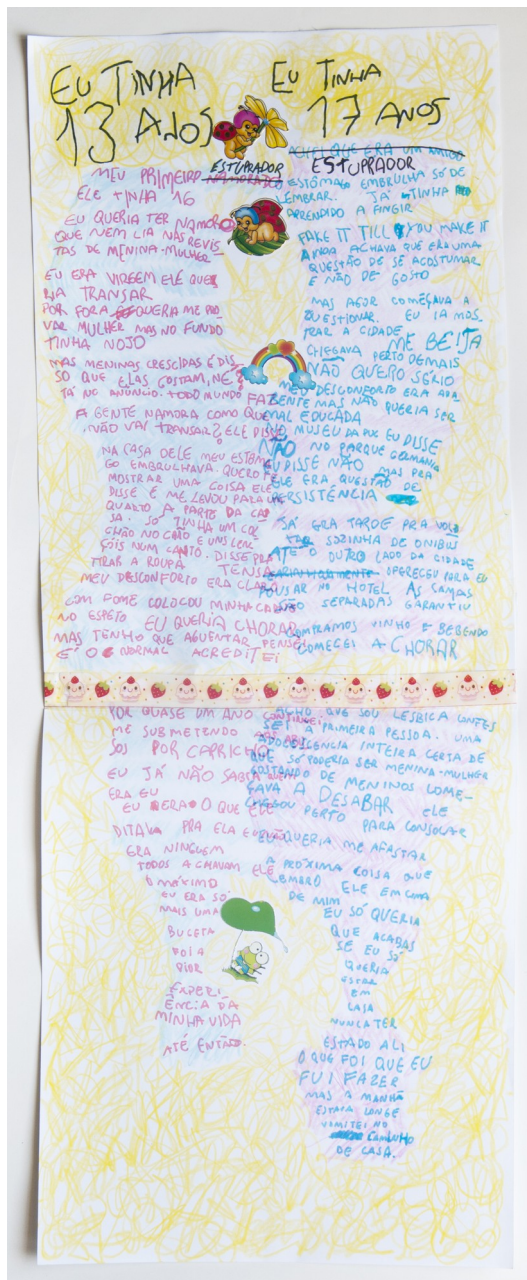 EU TINHA
13 ANOS
MEU PRIMEIRO ESTUPRADOR NAMORADO
ELE TINHA 16
EU QUERIA TER NAMORO
QUE NEM LIA NAS REVIS
TAS DE MENINA-MULHER
EU ERA VIRGEM ELE QUE
RIA TRANSAR
POR FORA QUERIA ME PRO
VAR MULHER MAS NO FUNDO
TINHA NOJO
MAS MENINAS CRESCIDAS É DIS
SO QUE ELAS GOSTAM, NÉ?
TÁ NO ANÚNCIO. TODO MUNDO FAZ
A GENTE NAMORA COMO QUE
NÃO VAI TRANSAR? ELE DISSE
NA CASA DELE MEU ESTÔMA
GO EMBRULHAVA. QUERO TE
MOSTRAR UMA COISA ELE
DISSE E ME LEVOU PARA UM
QUARTO A PARTE DA CA
SA. SÓ TINHA UM COL
CHÃO NO CHÃO E UNS LEN
ÇÓIS NUM CANTO. DISSE PRA
TIRAR A ROUPA TENSA
MEU DESCONFORTO ERA CLARO
COM FOME COLOCOU MINHA CARNE
NO ESPETO EU QUERIA CHORAR
MAS TENHO QUE AGUENTAR PENSEI
É O NORMAL ACREDITEI
POR QUASE UM ANO CONTINUEI
ME SUBMETENDO AOS ABU
SOS POR CAPRICHO
EU JÁ NÃO SABIA QUEM
ERA EU
EU ERA O QUE ELE
DITAVA PRA ELA EU NÃO
ERA NINGUÉM
TODOS ACHAVAM ELE
O MÁXIMO
EU ERA SÓ
MAIS UMA
BUCETA
FOI A
PIOR
EXPERI
ÊNCIA DA
MINHA VIDA
ATÉ ENTÃO.
EU TINHA
17 ANOS
ACHEI QUE ERA UM AMIGO
ESTUPRADOR
ESTÔMAGO EMBRULHA SÓ DE
LEMBRAR. JÁ TINHA
APRENDIDO A FINGIR
FAKE IT TILL YOU MAKE IT
ACHAVA QUE ERA UMA
QUESTÃO DE SE ACOSTUMAR
E NÃO DE GOSTO
MAS AGOR COMEÇAVA A
QUESTIONAR. EU IA MOS
TRAR A CIDADE
ME BEIJA
CHEGAVA PERTO DEMAIS
NÃO QUERO SÉRIO
MEU DESCONFORTO ERA APA
RENTE MAS NÃO QUERIA SER
MAL EDUCADA
NO MUSEU DA PUC EU DISSE
NÃO NO PARQUE GERMANIA
EU DISSE NÃO MAS PRA
ELE ERA QUESTÃO DE
PERSISTÊNCIA
JÁ ERA TARDE PRA VOL
TAR SOZINHA DE ONIBUS
ATÉ O OUTRO LADO DA CIDADE
CARINHOSAMENTE OFERECEU PARA EU
POUSAR NO HOTEL AS CAMAS
SÃO SEPARADAS GARANTIU
COMPRAMOS VINHO E BEBENDO
COMECEI A CHORAR
ACHO QUE SOU LÉSBICA CONTEI
SEI A PRIMEIRA PESSOA. UMA
ADOLESCENCIA INTEIRA CERTA DE
QUE SÓ PODERIA SER MENINA-MULHER
GOSTANDO DE MENINOS COME-
ÇAVA A DESABAR ELE
CHEGOU PERTO PARA CONSOLAR
EU QUERIA ME AFASTAR
A PRÓXIMA COISA QUE
LEMBRO ELE EM CIMA
DE MIM
EU SÓ QUERIA
QUE ACABAS
SE EU SÓ
QUERIA
ESTAR
EM
CASA
NUNCA TER
ESTADO ALI
O QUE FOI QUE EU
FUI FAZER
MAS A MANHÃ
ESTAVA LONGE
VOMITEI NO
CAMINHO
DE CASA.